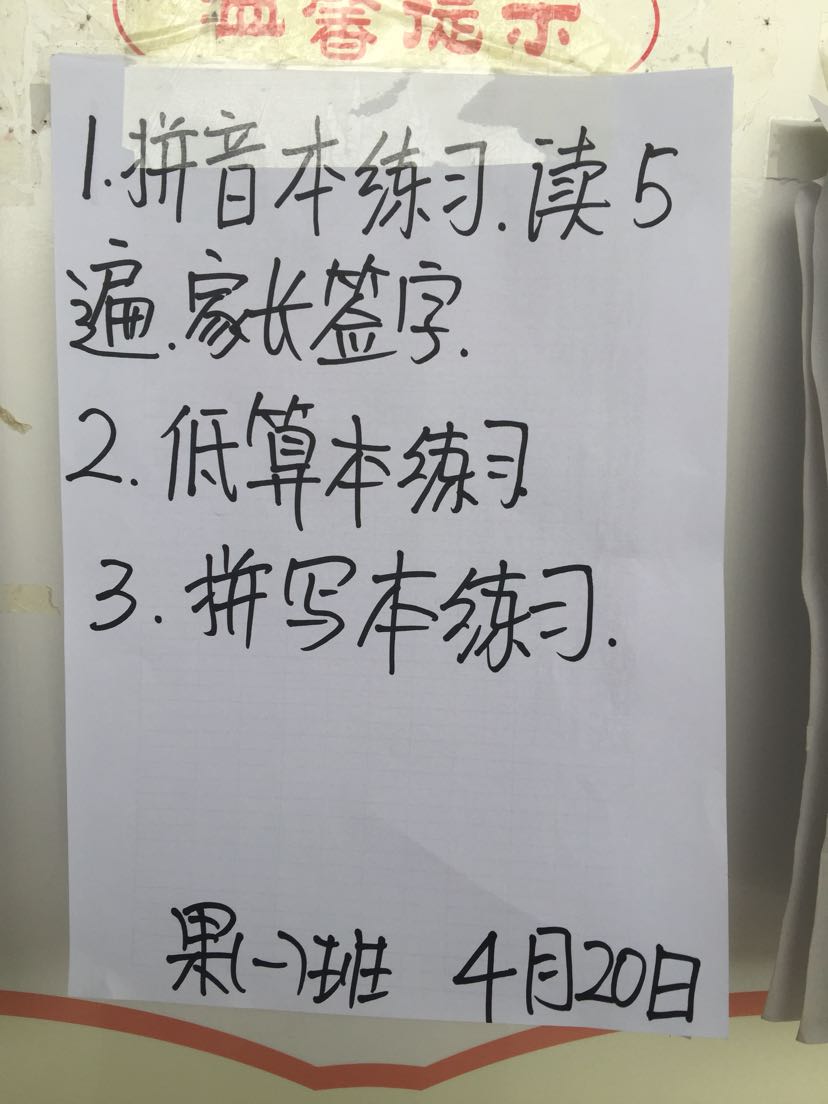 温馨提示
1.拼音本练习.读5
遍.家长签字.
2.低算本练习
3.拼写本练习.
果(一)班 4月20日